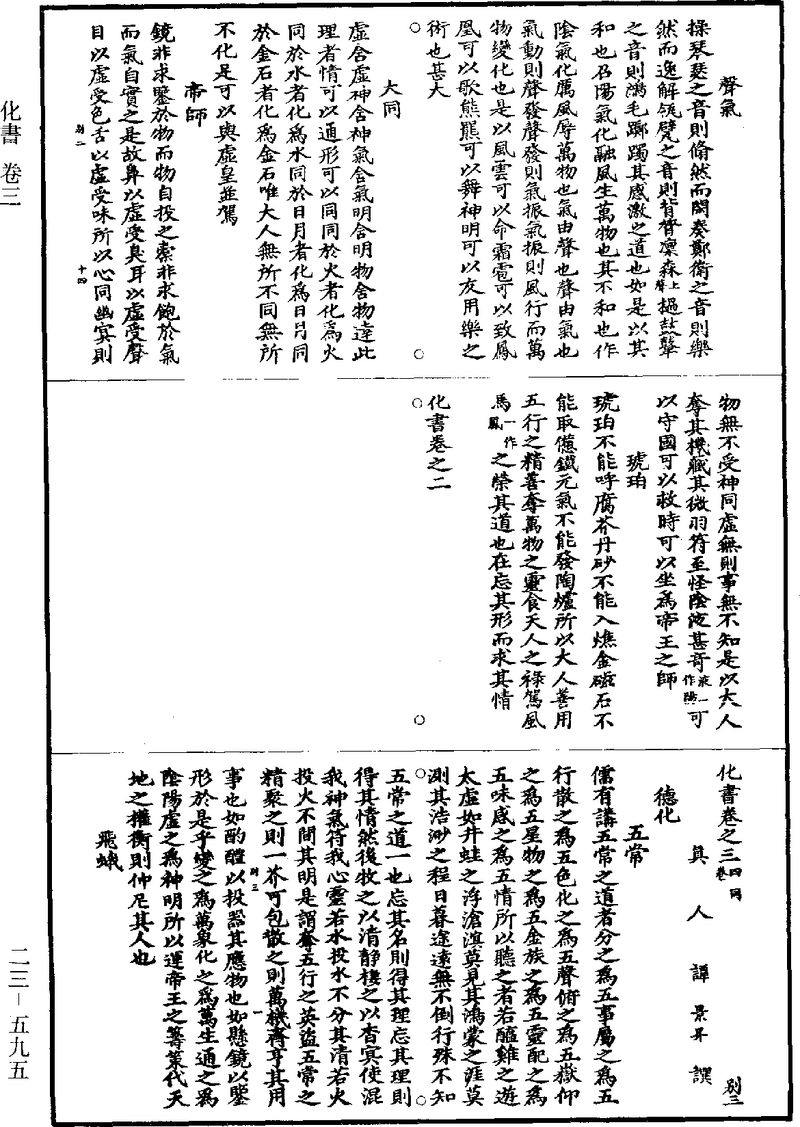 聲氣
操琴瑟之音則翛然而閑奏鄭衛之音則樂
然而逸解瓴甓之音則背膂凜森上聲撾鼓鼙
之音則鴻毛躑躅其感激之道也如是以其
和也召陽氣化融風生萬物也其不和也作
陰氣化厲風辱萬物也氣由聲也聲由氣也
氣動則聲發聲發則氣振氣振則風行而萬
物變化也是以風雲可以命霜雹可以致鳳
凰可以歌熊羆可以舞神明可以友用樂之
術也甚大
大同
虛含虛神含神氣含氣明含明物含物達此
理者情可以通形可以同同於火者化爲火
同於水者化爲水同於日月者化爲日月同
於金石者化爲金石唯大人無所不同無所
不化是可以與虛皇並駕
帝師
鏡非求鑒於物而物自投之橐非求飽於氣
而氣自實之是故鼻以虛受臭耳以虛受聲
目以虛受色舌以虛受味所以心同幽冥則
別二 十四
物無不受神同虛無則事無不知是以大人
奪其機藏其微羽符至怪陰液甚奇液一作陽可
以守國可以救時可以坐爲帝王之師
琥珀
琥珀不能呼腐芥丹砂不能入燋金磁石不
能取憊鐵元氣不能發陶爐所以大人善用
五行之精善奪萬物之靈食天人之祿駕風
馬一作鳳之榮其道也在忘其形而求其情
化書卷之二
化書卷之三 四同卷
真人譚景昇譔 別三
德化
五常
儒有講五常之道者分之爲五事屬之爲五
行散之爲五色化之爲五聲俯之爲五嶽仰
之爲五星物之爲五金族之爲五靈配之爲
五味感之爲五情所以聽之者若醯雞之遊
太虛如井蛙之浮滄溟莫見其鴻蒙之涯莫
測其浩渺之程日暮途遠無不倒行殊不知
五常之道一也忘其名則得其理忘其理則
得其情然後牧之以清靜棲之以杳冥使混
我神氣符我心靈若水投水不分其清若火
投火不間其明是謂奪五行之英盜五常之
精聚之則一芥可包散之則萬機齊亨其用
別三 一
事也如酌醴以投器其應物也如懸鏡以鑒
形於是乎變之爲萬象化之爲萬生通之爲
陰陽虛之爲神明所以運帝王之籌策代天
地之權衡則仲尼其人也
飛蛾
化書 卷三
二三－五九五